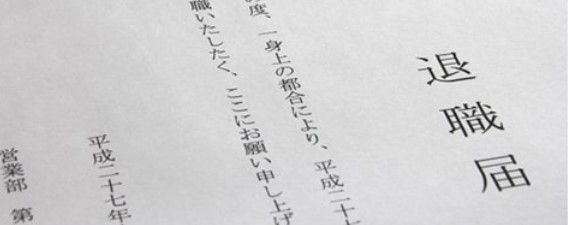 退職届
の度、一身上の都合により、平成二十七
職いたしたく、ここにお願い申し上げ
平成二十七年
営業部 第